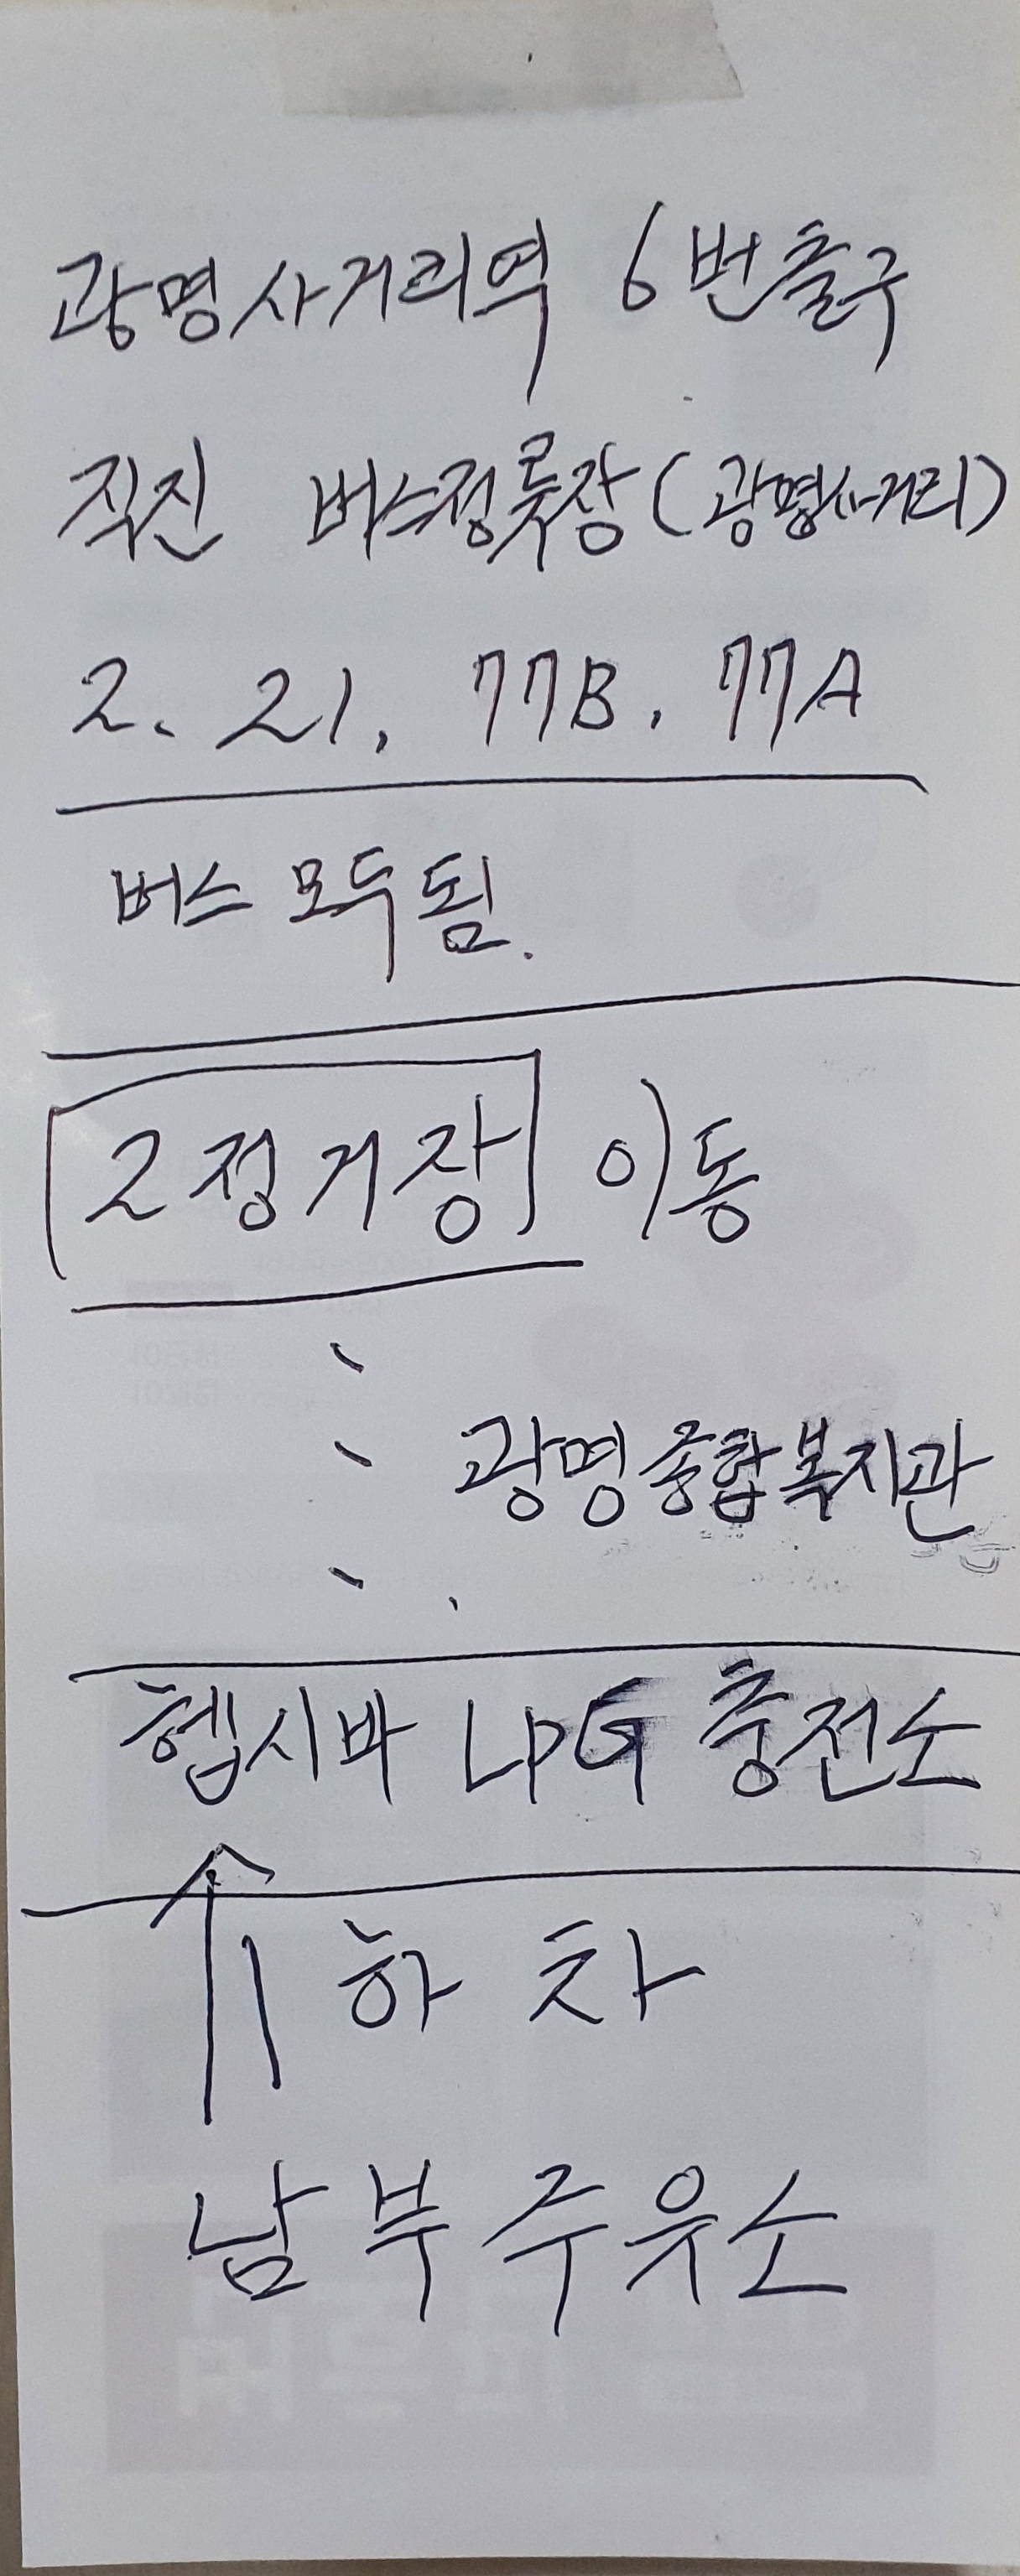 광명사거리역 6번출구
직진 버스정류장(광명사거리)
2. 21, 77B, 77A
버스 모두 됨.
2정거장 이동
광명종합복지관
헵시바 LPG 충전소
하차
남부주유소